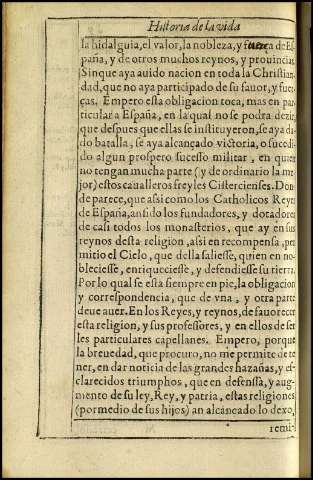 Historia de la vida
la hidalguia, el valor, la nobleza, y fuerça de Es
paña, y de otros muchos reynos, y prouincias
Sin que aya auido nacion en toda la Christian
dad, que no aya participado de su fauor, y fuer
ças. Empero esta obligacion toca, mas en par
ticular a España, en la qual no se podra dezir
que despues que ellas se instituyeron, se aya da
do batalla, se aya alcançado victoria, o sucedi
do algun prospero sucesso militar, en quien
no tengan mucha parte (y de ordinario la me
jor) estos caualleros freyles Cistercienses. Don
de parece, que assi como los Catholicos Reyes
de España, an sido los fundadores, y dotadores
de casi todos los monasterios, que ay en sus
reynos desta religion, assi en recompensa, per
mitio el Cielo, que della saliesse, quien en no
bleciesse, enriqueciesse, y defendiesse su tierra.
Por lo qual se està siempre en pie, la obligacion
y correspondencia, que de vna, y otra parte
deue auer. En los Reyes, y reynos, de fauorecer
esta religion, y sus professores, y en ellos de ser
les particulares capellanes. Empero, porque
la breuedad, que procuro, no me permite dete
ner, en dar noticia de las grandes hazañas, y es
clarecidos triumphos, que en defensa, y aug-
mento de su ley, Rey, y patria, estas religiones
(por medio de sus hijos) an alcãnçado lo dexo,
remi-